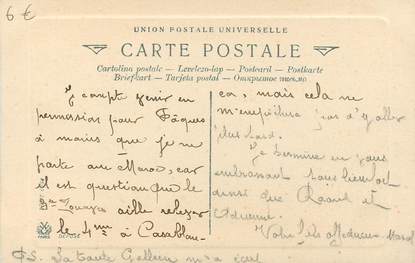 6 €
UNION POSTALE UNIVERSELLE
CARTE POSTALE
Cartolina postale — Levelezo-lap — Postcard — Postkarte
Briefkaart — Tarjeta postal — Открытое письмо
Je compte venir en
permission pour Pâques
à moins que je ne
parte au Maroc, car
il est question que le
2me Zouaves aille relever
le 4me à Casablan-
ca, mais cela ne
m'empêchera pas d'y aller
plus tard.
Je termine en vous
embrassant tous
ainsi que Raoul et
Votre très affectueux Marcel
PS. La tante m'a écrit